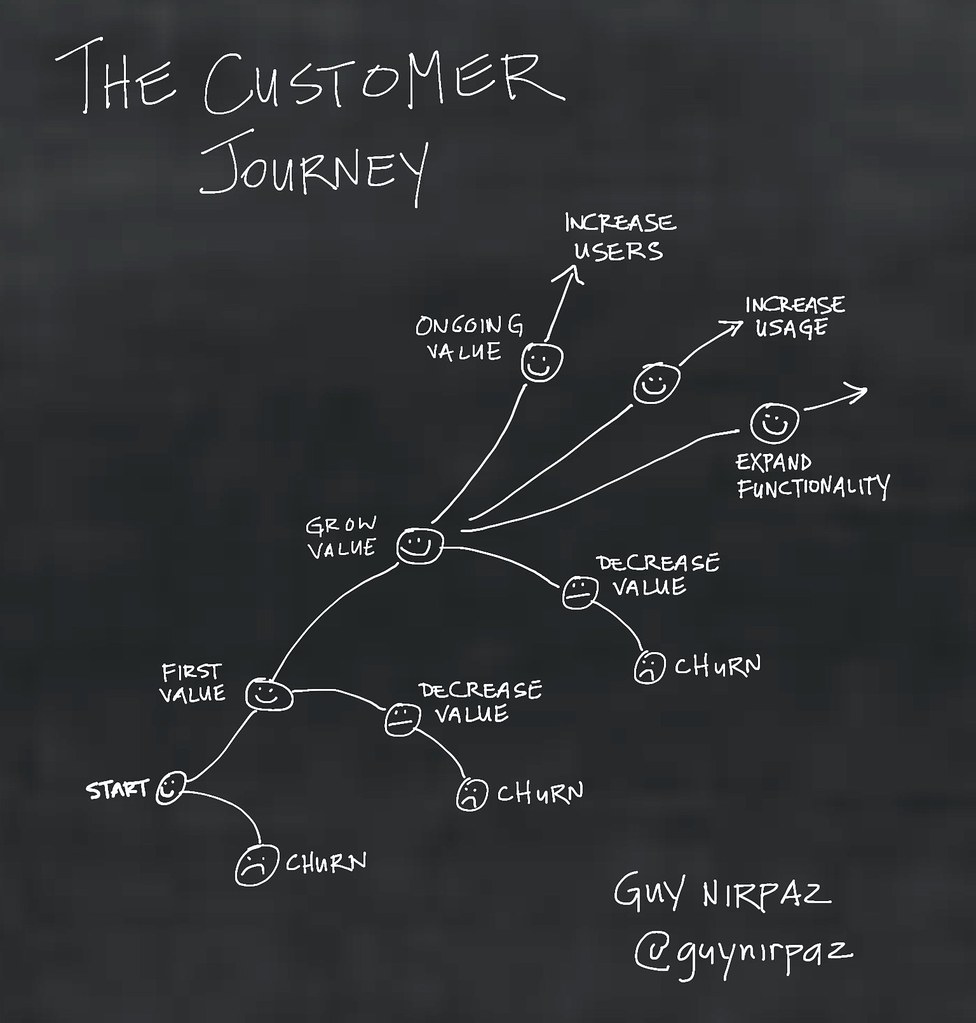 THE CUSTOMER
JOURNEY
INCREASE
USERS
INCREASE
USAGE
ONGOING
VALUE
EXPAND
FUNCTIONALITY
GROW
VALUE
DECREASE
VALUE
CHURN
FIRST
VALUE
DECREASE
VALUE
START
CHURN
CHURN
GUY NIRPAZ
@guynirpaz